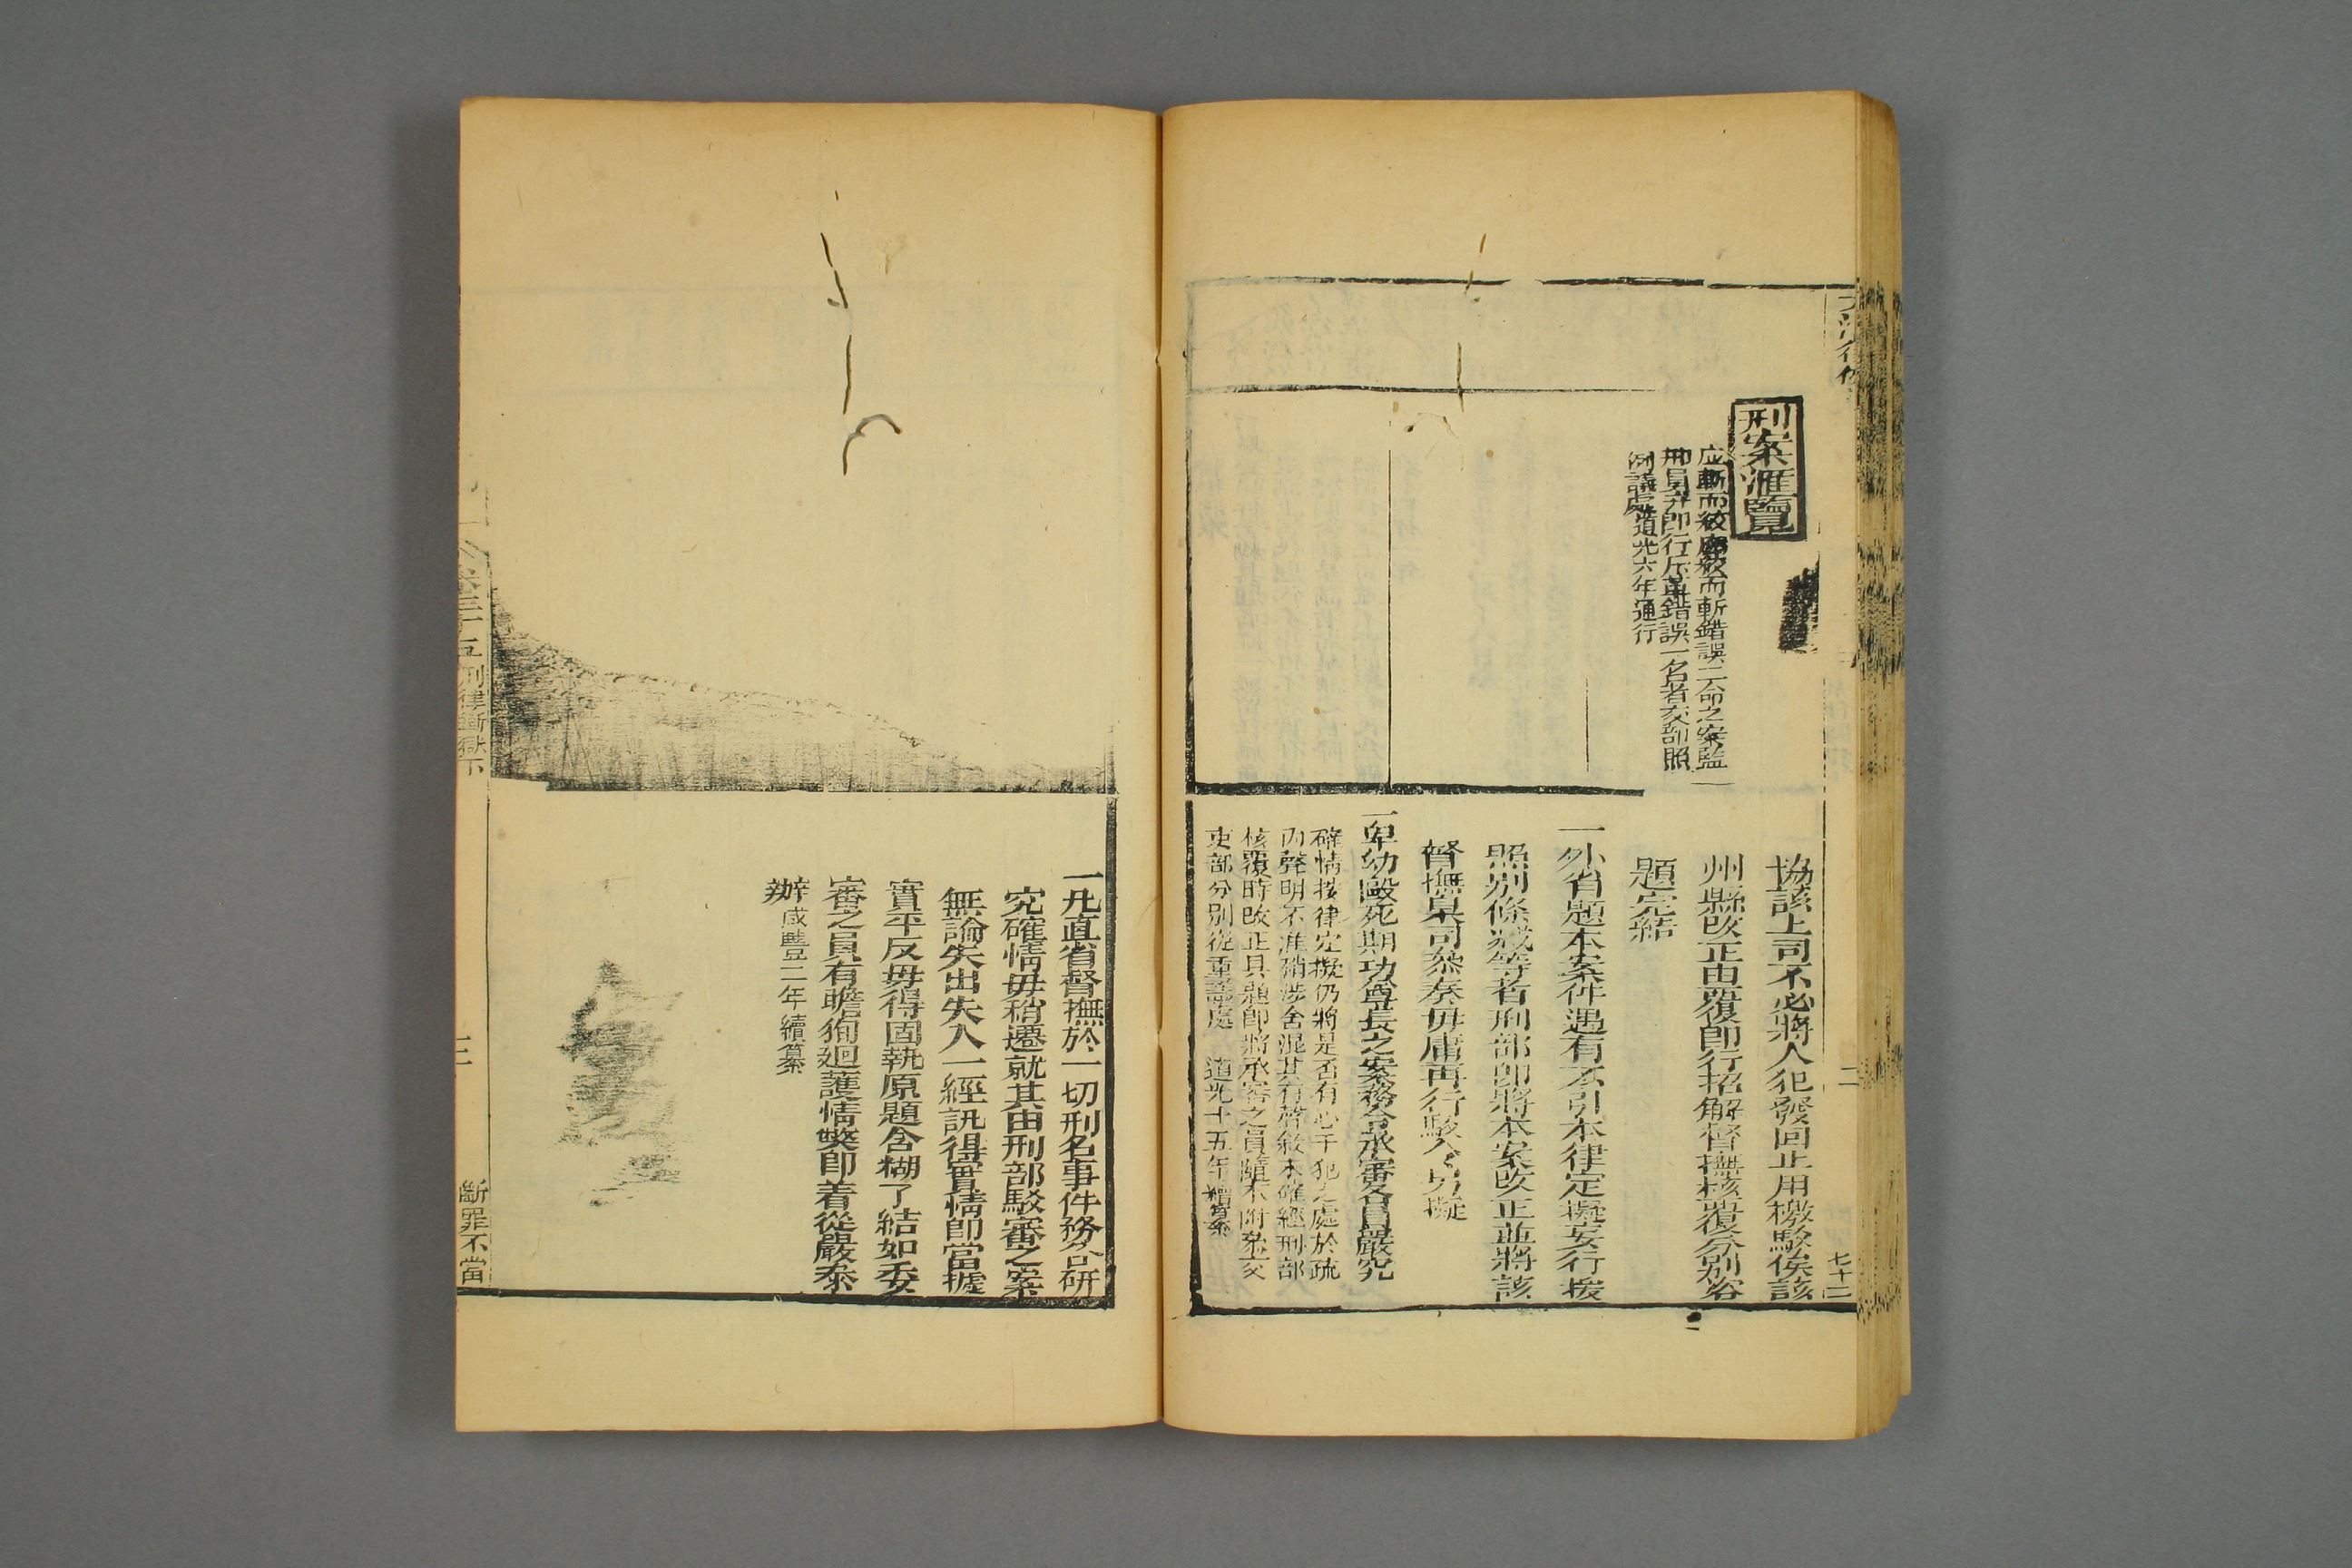 大清律例
刑案滙覽
應斬而絞應絞而斬錯誤二命之案監
刑員弁即行斥革錯誤一名者交部照
例議處道光六年通行
二
七十二
協該上司不必將人犯發回止用檄駁俟該
州縣改正申覆即行招解督撫核覆分別咨
題完結
一外省題本案件遇有不引本律定擬妄行援
照別條減等者刑部即將本案改正並將該
督撫臬司叅奏毋庸再行駁令另擬
一卑幼毆死期功尊長之案務令承審各員嚴究
確情按律定擬仍將是否有心干犯之處於疏
內聲明不准稍涉含混其有聲敘未確經刑部
核覆時改正具題即將承審之員隨本附叅交
吏部分別從重議處 道光十五年續纂
一凡直省督撫於一切刑名事件務令研
究確情毋稍遷就其由刑部駁審之案
無論失出失入一經訊得實情即當據
實平反毋得固執原題含糊了結如委
審之員有瞻狥廻護情獘即着從嚴叅
辦咸豐二年續纂
卷三十五刑律斷獄下
三
斷罪不當